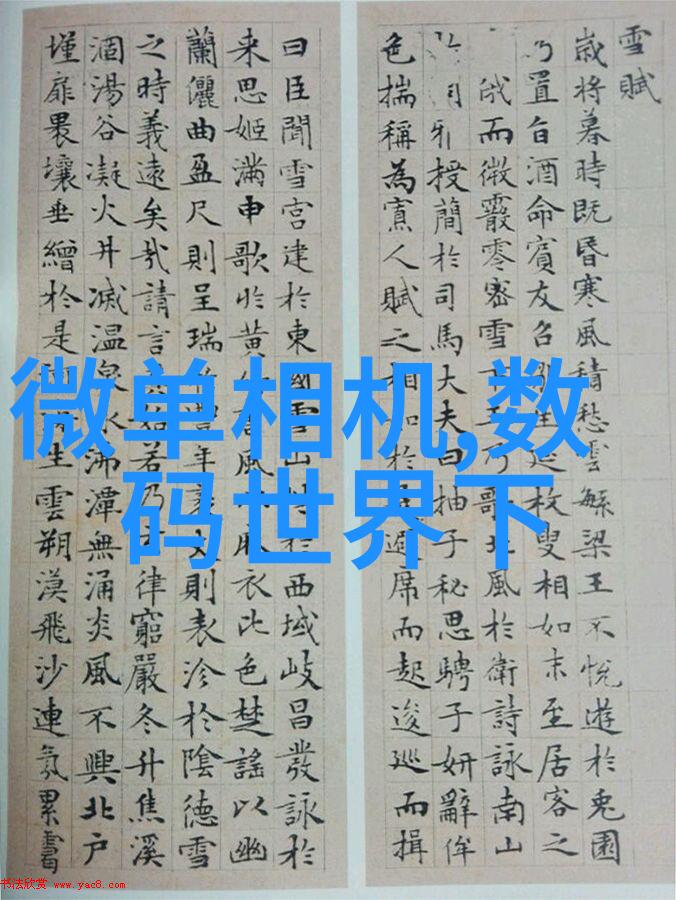 雪賦
歲將暮時既昏寒風積愁雲繁梁王不悅遊於兔園
乃置旨酒命賓友召生延枚叟相如末至居客之
俄而微霰零密雪下王乃歌北風於衛詩詠南山
授簡於司馬大夫曰抽子秘思騁子妍辭侔
色揣稱為寡人賦之相如於避席而起逡巡而揖
曰臣聞雪宮建於東國雪山峙於西域岐昌發詠於
来思姬滿申歌於黃風麻衣比色楚謠以幽
蘭儷曲盈尺則呈瑞豐年袤丈則表沴於陰德雪
之時義遠矣哉請言始若乃玄律窮嚴冬升焦溪
涸湯谷凝火井滅温泉冰沸潭無涌炎風不興北户
墐扉裸壤垂繒於是生雲朔漠飛沙連氛累靄
微单相机,数
码世界下
书法欣赏 www.yac8.com